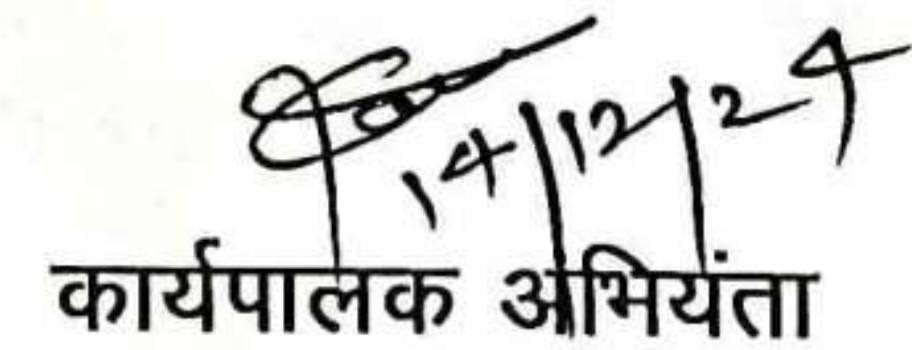 14/12/24
कार्यपालक अभियंता